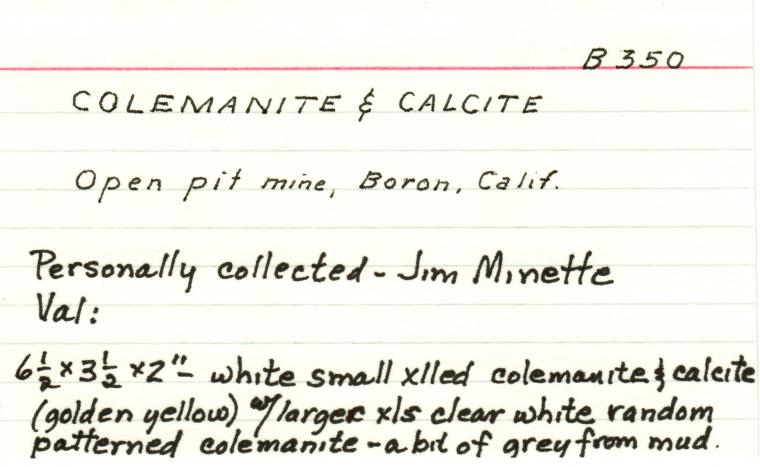 B 350
COLEMANITE & CALCITE
Open pit mine, Boron, Calif.
Personally collected - Jim Minette
Val:
6½ x 3½ x 2" - white small xlled colemanite & calcite
(golden yellow) w/larger xls clear white random
patterned colemanite - a bit of grey from mud.